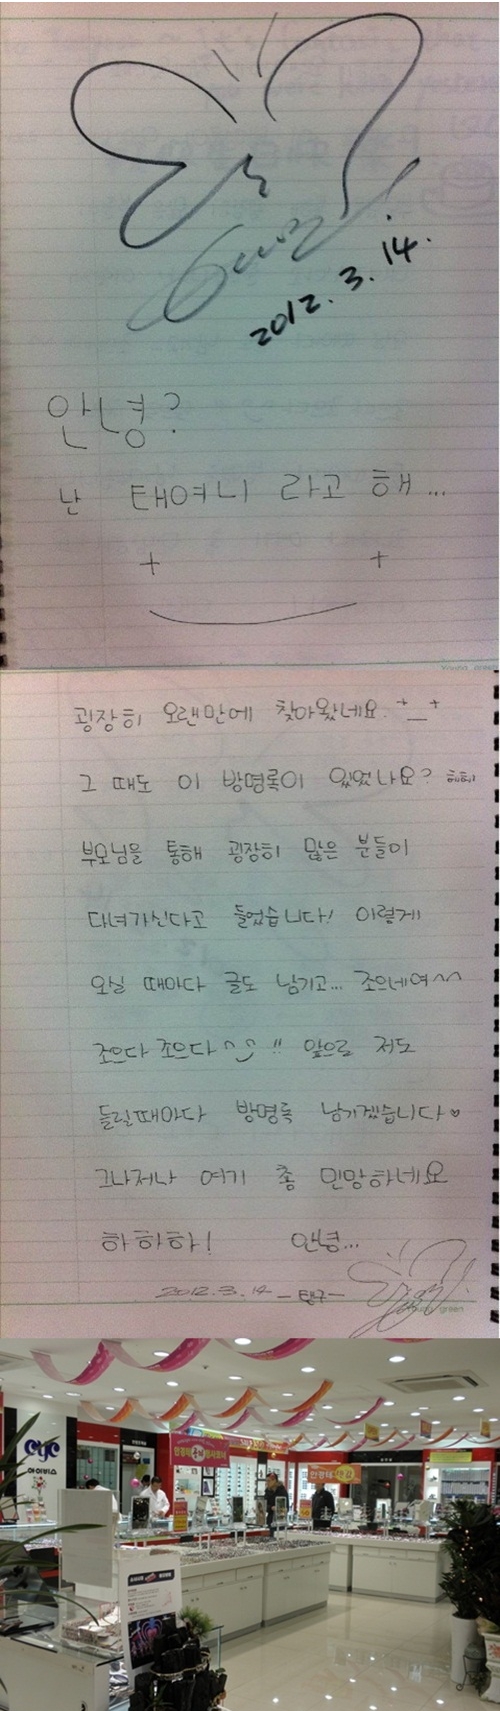 2012. 3. 14.
안녕?
난 태여니 라고 해...
Young green
굉장히 오랜만에 찾아왔네요. +_+
그 때도 이 방명록이 있었나요? 헤헤
부모님을 통해 굉장히 많은 분들이
다녀가신다고 들었습니다! 이렇게
오실 때마다 글도 남기고... 조으네여^^
조으다 조으다^^ !! 앞으로 저도
들릴때마다 방명록 남기겠습니다♡
그나저나 여기 쫌 민망하네요
하하하! 안녕...
2012. 3. 14 -탱구-
Young green
eye
아이비스
안경테